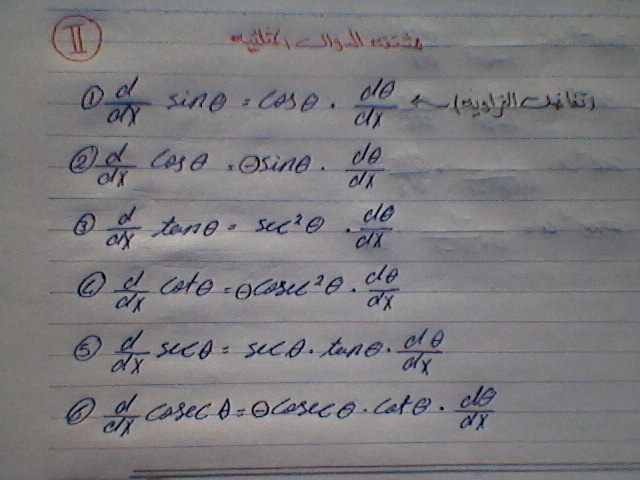 II
مشتقه الدوال المثلثيه
① d/dx sinθ = cosθ . dθ/dx ← (تفاضل الزاويه)
② d/dx cosθ = ⊖sinθ . dθ/dx
③ d/dx tanθ = sec²θ . dθ/dx
④ d/dx cotθ = ⊖cosec²θ . dθ/dx
⑤ d/dx secθ = secθ . tanθ . dθ/dx
⑥ d/dx cosecθ = ⊖cosecθ . cotθ . dθ/dx